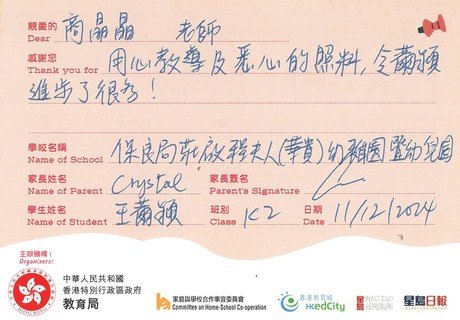 親愛的 商晶晶 老師
Dear
感謝您 用心教導及悉心的照料,令蕭穎
Thank you for
進步了很多!
學校名稱 保良局莊啟程夫人(華貴)幼稚園暨幼兒園
Name of School
家長姓名 Crystal 家長簽名
Name of Parent Parent's Signature
學生姓名 王蕭穎 班別 K2 日期 11/12/2024
Name of Student Class Date
主辦機構:
Organisers:
中華人民共和國
香港特別行政區政府
教育局
家庭與學校合作事宜委員會
Committee on Home-School Co-operation
香港教育城
HKedCity
星島新聞集團
SING TAO
星島日報